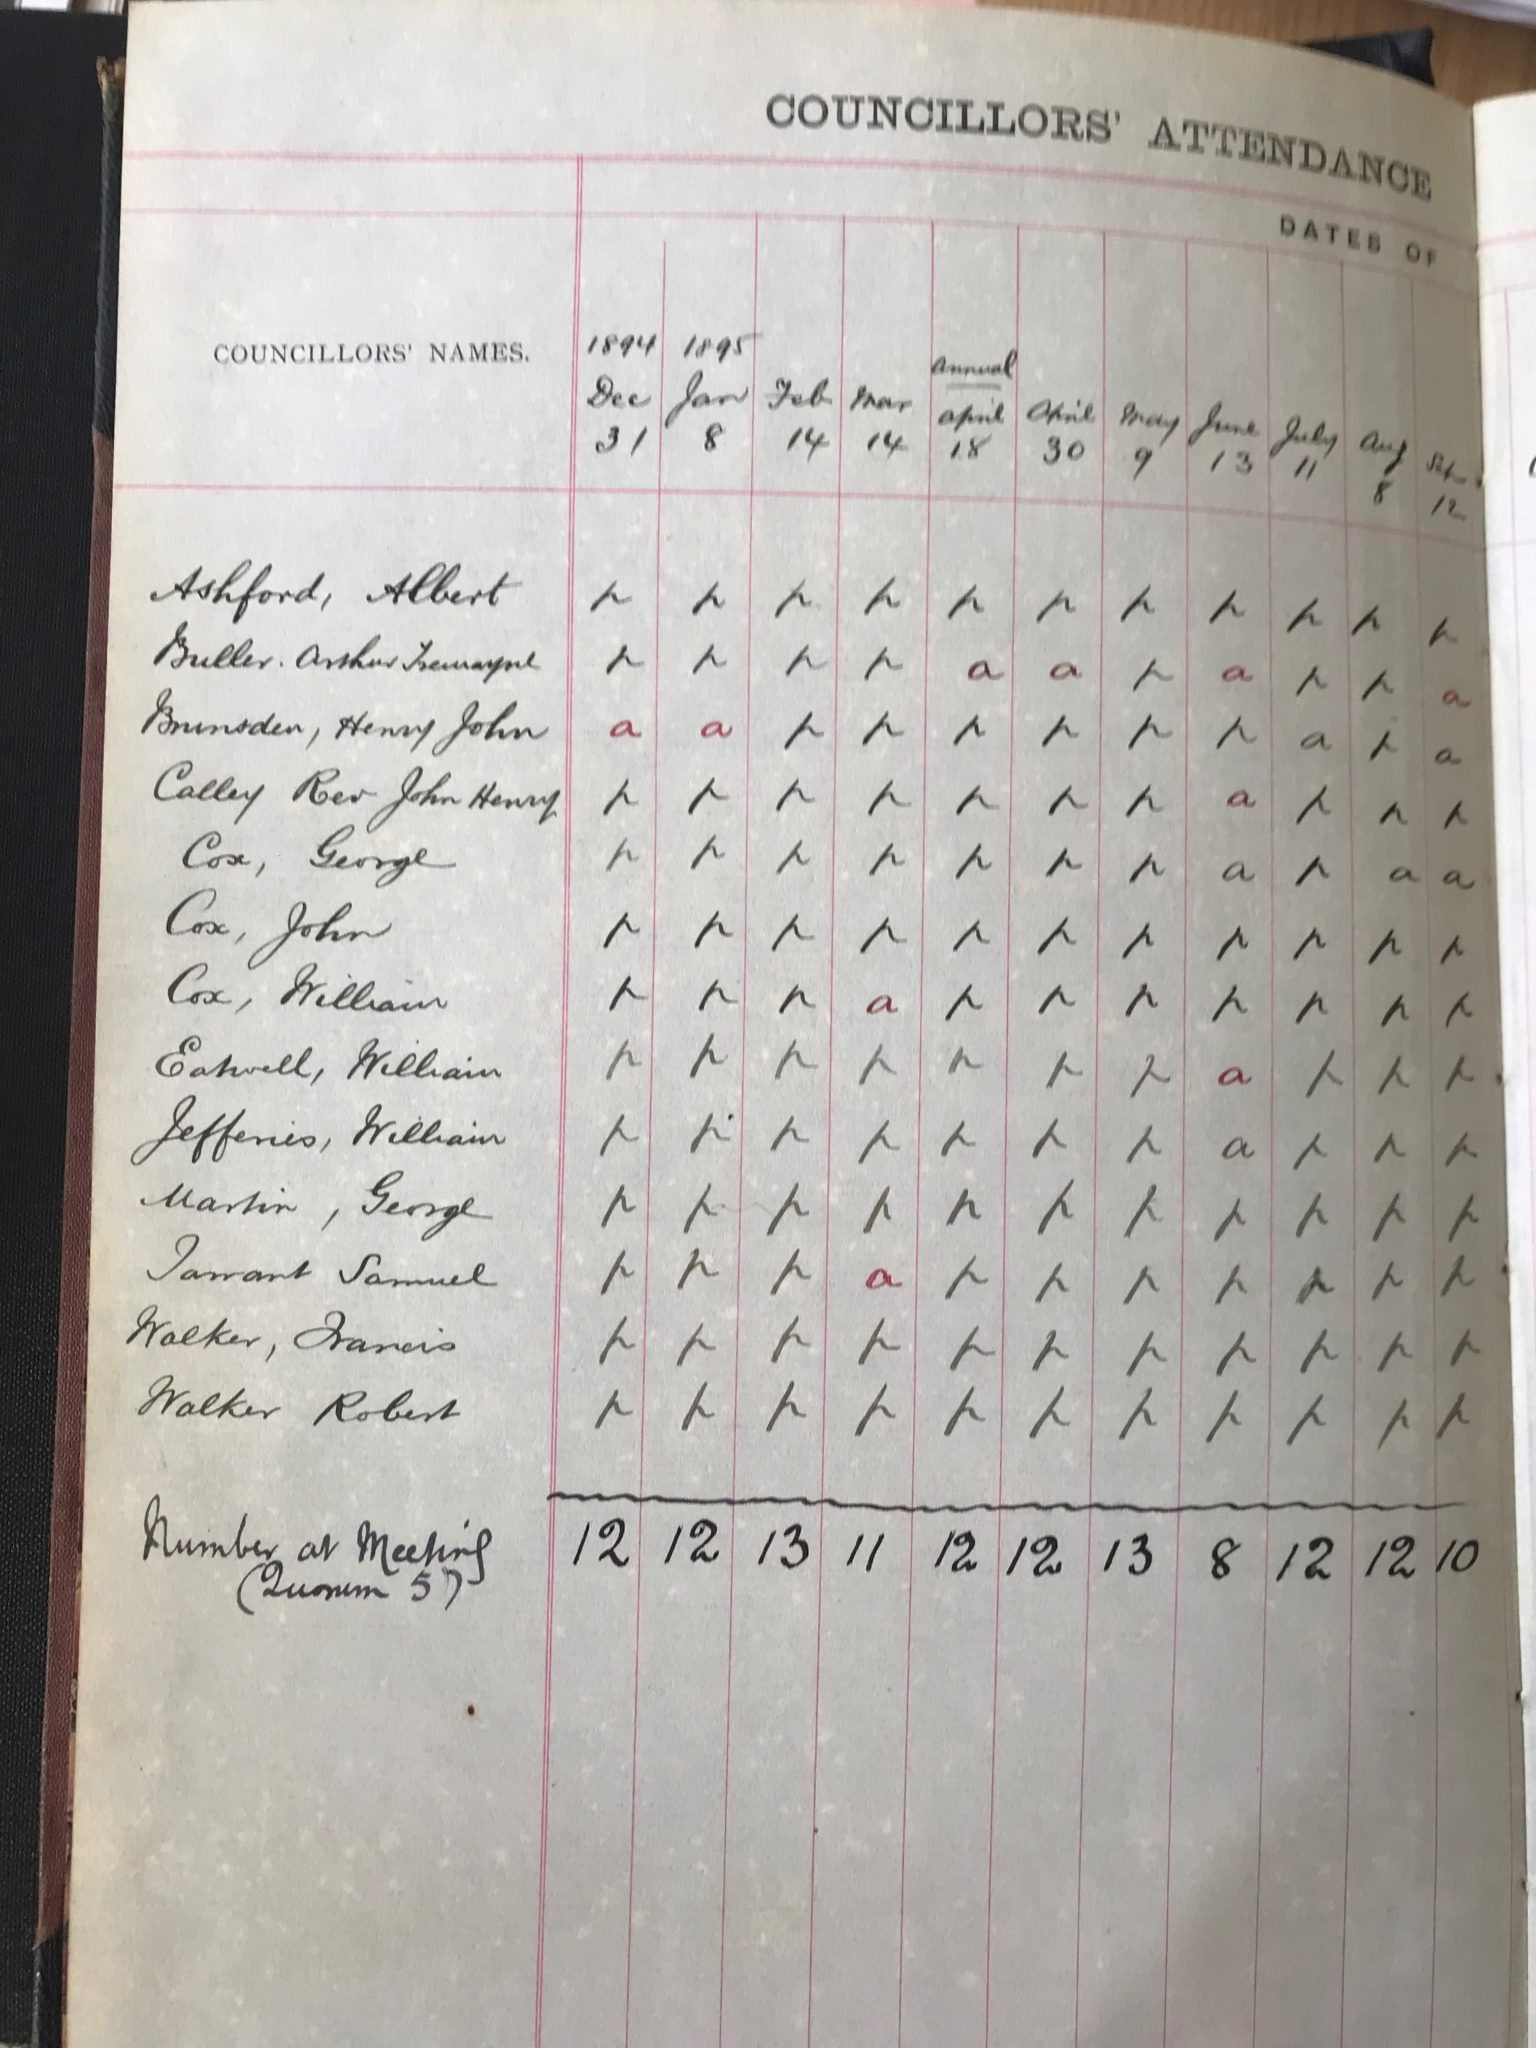 COUNCILLORS' ATTENDANCE
DATES OF
COUNCILLORS' NAMES.
1894 1895
annual
Dec Jan Feb Mar april April May June July Aug Sep
31 8 14 14 18 30 9 13 11 8 12
Ashford, Albert p p p p p p p p p p p
Buller. Arthur Tremayne p p p p a a p a p p a
Brunsden, Henry John a a p p p p p p a p a
Calley Rev John Henry p p p p p p p a p p p
Cox, George p p p p p p p a p a a
Cox, John p p p p p p p p p p p
Cox, William p p p a p p p p p p p
Eatwell, William p p p p p p p a p p p
Jefferies, William p p p p p p p a p p p
Martin, George p p p p p p p p p p p
Tarrant Samuel p p p a p p p p p p p
Walker, Francis p p p p p p p p p p p
Walker Robert p p p p p p p p p p p
Number at Meeting 12 12 13 11 12 12 13 8 12 12 10
(Quorum 5)